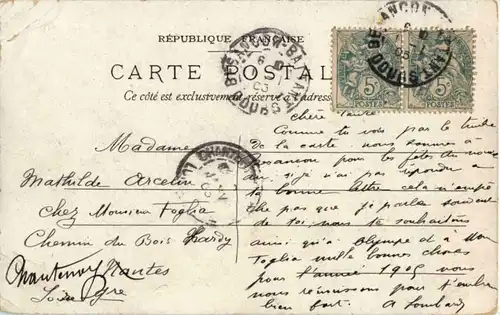 RÉPUBLIQUE FRANÇAISE
CARTE POSTALE
Ce côté est exclusivement réservé à l'adresse
5c 5c
POSTES POSTES
Madame
Mathilde Arcelin
chez Monsieur Foglia
Chemin du Bois Hardy
Chantenay Nantes
Chère
Comme tu vois par le timbre
de la carte nous sommes à
Besançon pour les fêtes du nouvel
si je n'ai pas répondu à
ta bonne lettre cela n'empê
che pas que je parle souvent
de toi, nous te souhaitons
ainsi qu'à Olympe et à Mr
Foglia mille bonnes choses
pour l'année 1905 nous
nous réunissons pour t'embras
bien fort. A Lombard